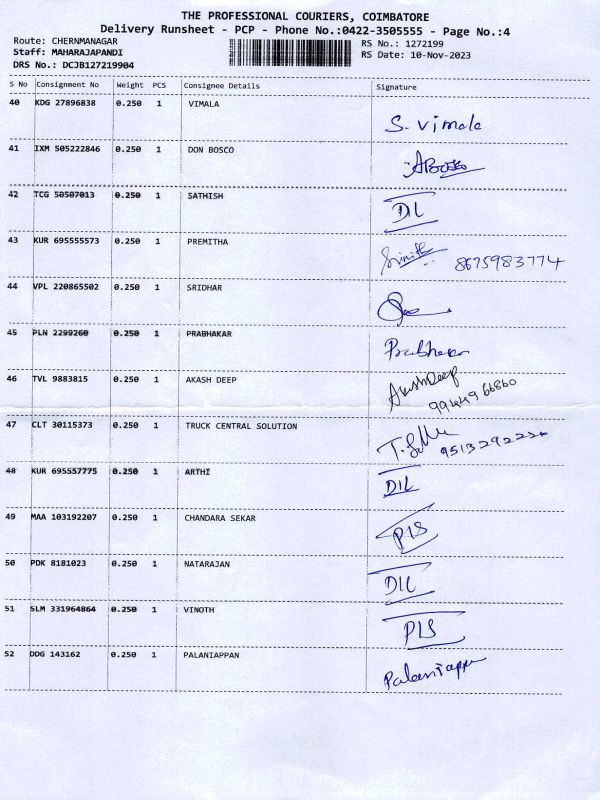 THE PROFESSIONAL COURIERS, COIMBATORE
Delivery Runsheet - PCP - Phone No.:0422-3505555 - Page No.:4
Route: CHERNMANAGAR RS No.: 1272199
Staff: MAHARAJAPANDI RS Date: 10-Nov-2023
DRS No.: DCJB127219904
S No Consignment No Weight PCS Consignee Details Signature
40 KDG 27896838 0.250 1 VIMALA
S. Vimala
41 IXM 505222846 0.250 1 DON BOSCO
42 TCG 50507013 0.250 1 SATHISH
DIL
43 KUR 695555573 0.250 1 PREMITHA
8675983774
44 VPL 220865502 0.250 1 SRIDHAR
45 PLN 2299260 0.250 1 PRABHAKAR
Prabhakar
46 TVL 9883815 0.250 1 AKASH DEEP
AkashDeep
9944966860
47 CLT 30115373 0.250 1 TRUCK CENTRAL SOLUTION
48 KUR 695557775 0.250 1 ARTHI
DIL
49 MAA 103192207 0.250 1 CHANDARA SEKAR
PIS
50 PDK 8181023 0.250 1 NATARAJAN
DIL
51 SLM 331964864 0.250 1 VINOTH
PIS
52 DDG 143162 0.250 1 PALANIAPPAN
Palaniappn